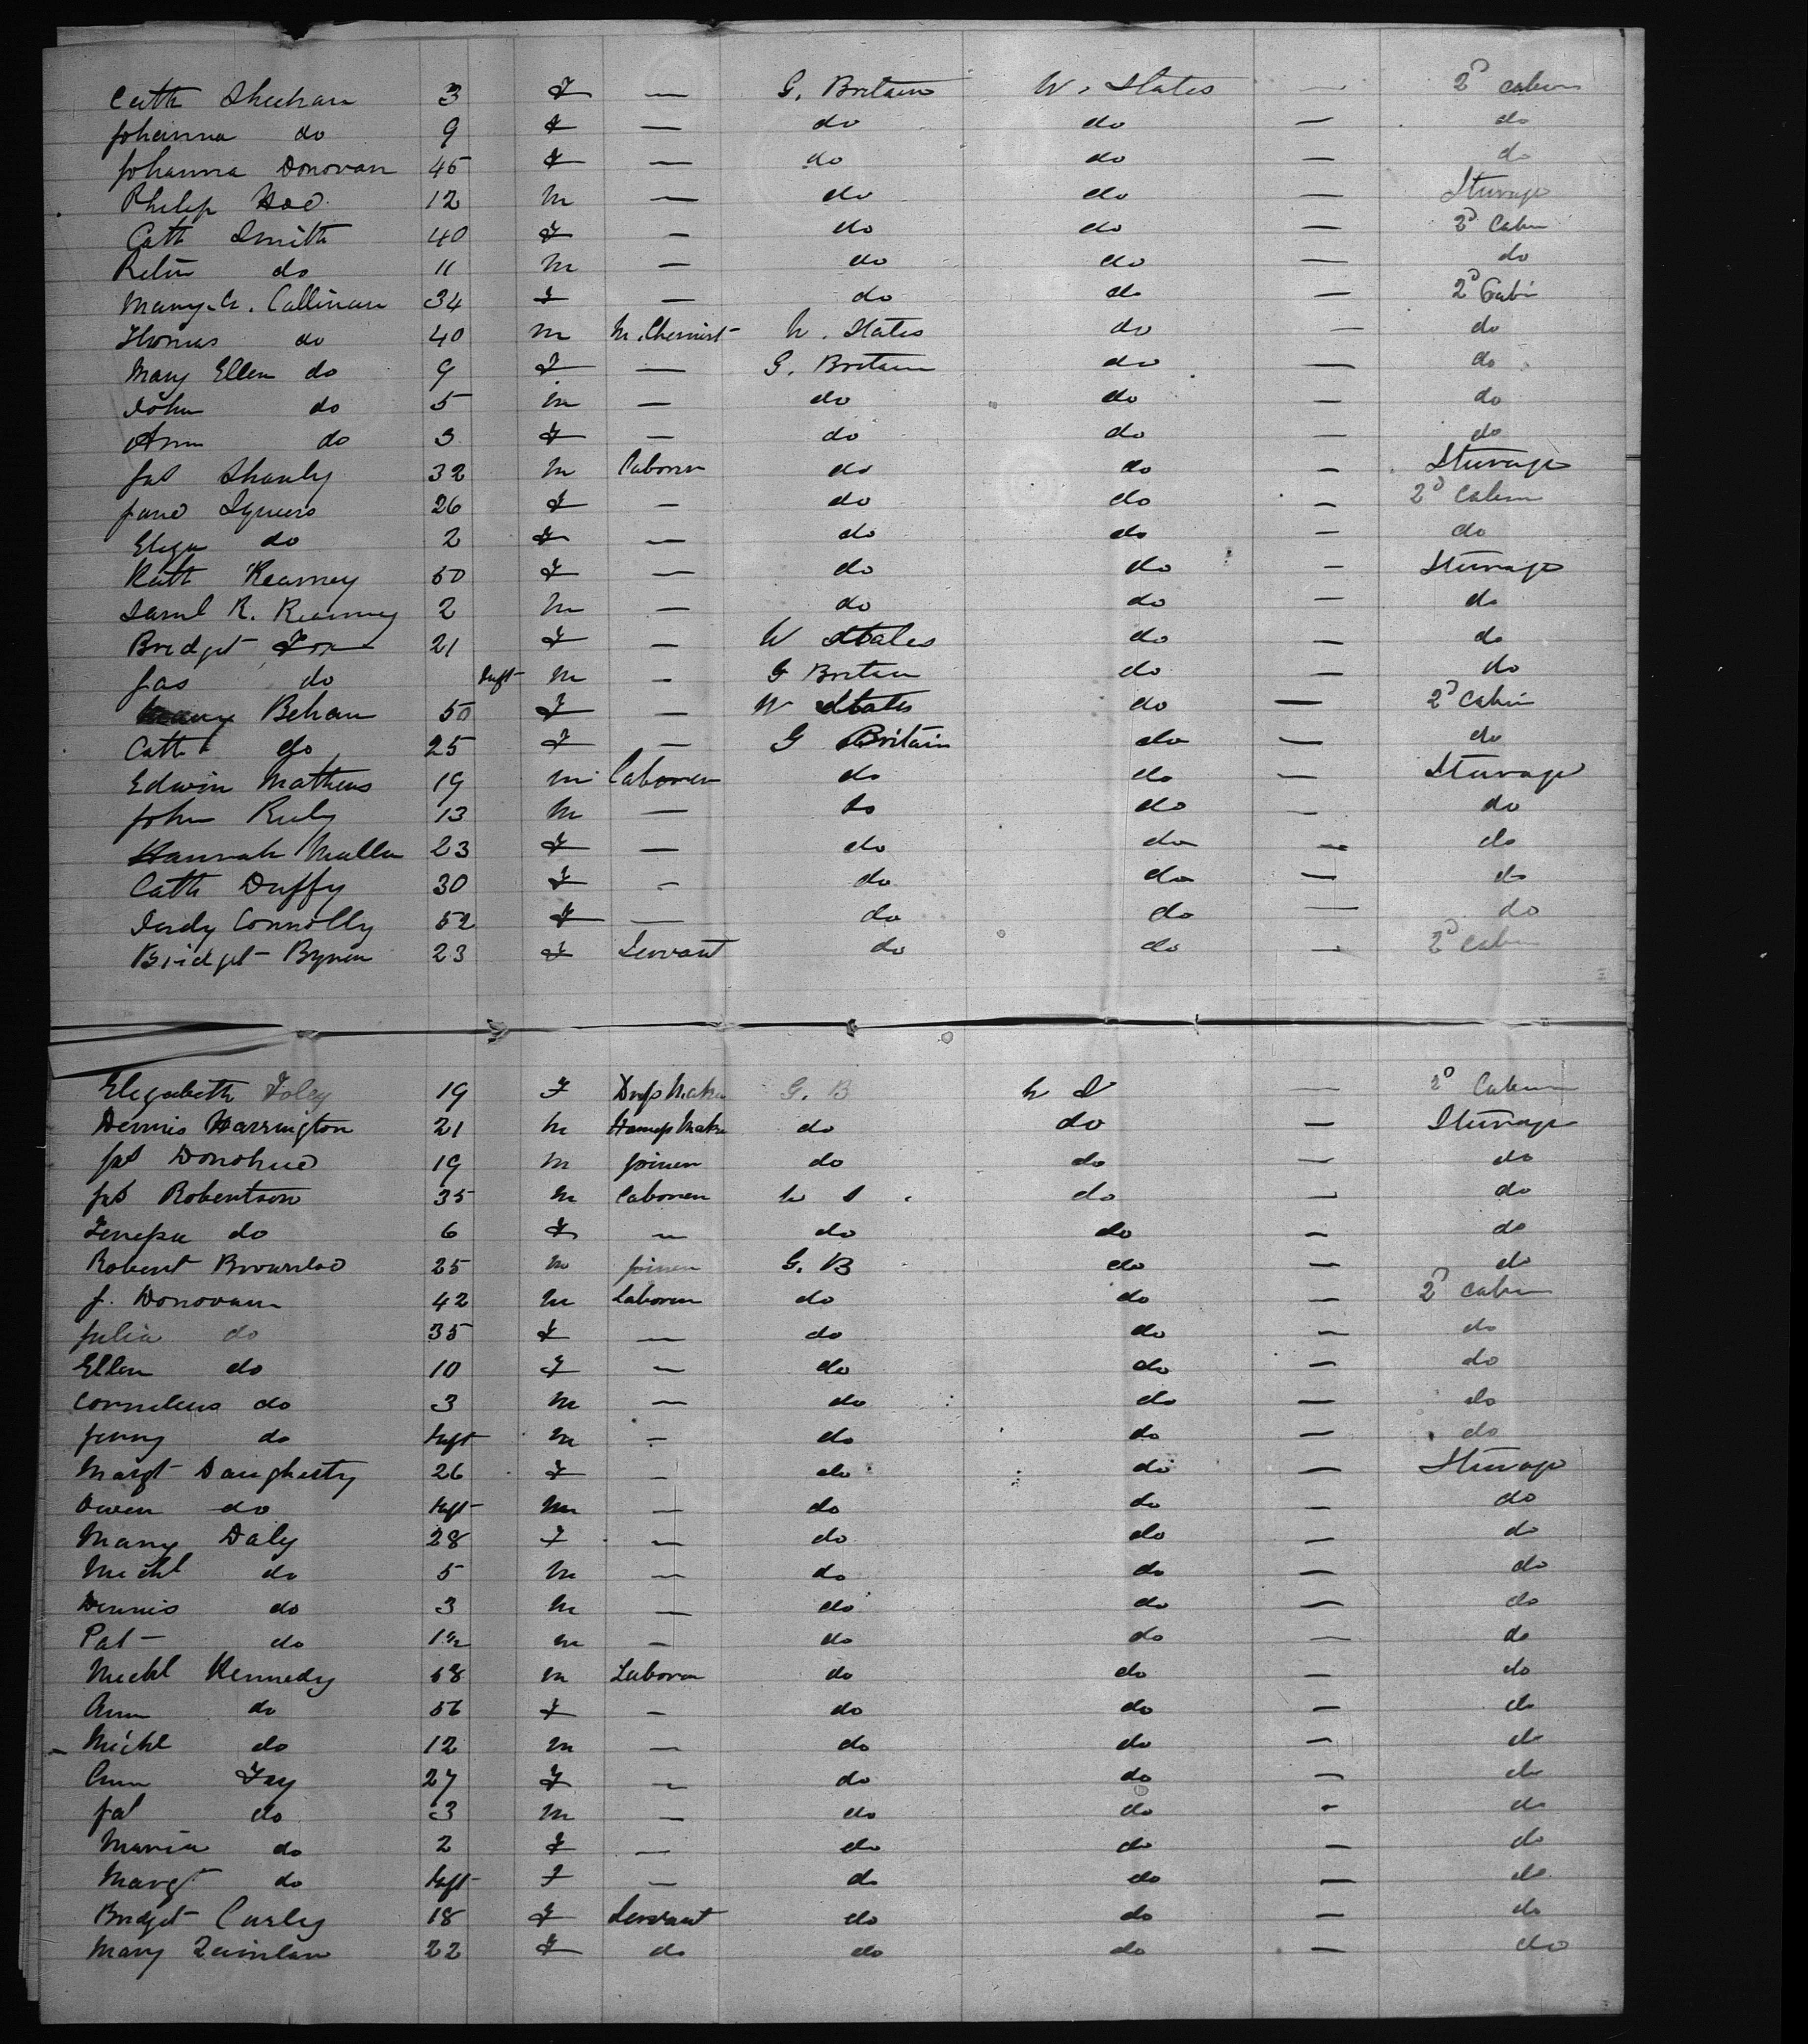 Cath Sheehan 3 F — G. Britain U. States — 2d Cabin
Johanna do 9 F — do do — do
Johanna Donovan 45 F — do do — do
Philip 12 M — do do — Steerage
Cath Smith 40 F — do do — 2d Cabin
do 11 M — do do — do
Mary A. Callinan 34 F — do do — 2d Cabin
Thomas do 40 M M. Chemist U. States do — do
Mary Ellen do 9 F — G. Britain do — do
John do 5 M — do do — do
Ann do 3 F — do do — do
Jas Shanly 32 M Laborer do do — Steerage
Jane Squiers 26 F — do do — 2d Cabin
Eliza do 2 F — do do — do
Kath Kearney 50 F — do do — Steerage
Saml R. Kearney 2 M — do do — do
Bridget Fox 21 F — U States do — do
Jas do Inft M — G Britain do — do
Mary Behan 50 F — U States do — 2d Cabin
Cath do 25 F — G Britain do — do
Edwin Mathews 19 M Laborer do do — Steerage
John 13 M — do do — do
Hannah Mullen 23 F — do do — do
Cath Duffy 30 F — do do — do
Judy Connolly 52 F — do do — do
Bridget Byrne 23 F Servant do do — 2d Cabin
Elizabeth Foley 19 F Dress Maker G. B U S — 2d Cabin
Dennis Harrington 21 M Harness Maker do do — Steerage
Jas Donohue 19 M Joiner do do — do
Jas Robertson 35 M Laborer U S. do — do
do 6 F — do do — do
Robert Brownlee 25 M Joiner G. B do — do
J. Donovan 42 M Laborer do do — 2d Cabin
Julia do 35 F — do do — do
Ellen do 10 F — do do — do
Cornelius do 3 M — do do — do
Jenny do Inft M — do do — do
Margt Daugherty 26 F — do do — Steerage
Owen do Inft M — do do — do
Mary Daly 28 F — do do — do
Michl do 5 M — do do — do
Dennis do 3 M — do do — do
Pat do M — do do — do
Michl Kennedy 58 M Laborer do do — do
Ann do 56 F — do do — do
Michl do 12 M — do do — do
Ann Fay 27 F — do do — do
Jas do 3 M — do do — do
Maria do 2 F — do do — do
Margt do Inft F — do do — do
Bridget Curley 18 F Servant do do — do
Mary Quinlan 22 F do do do — do